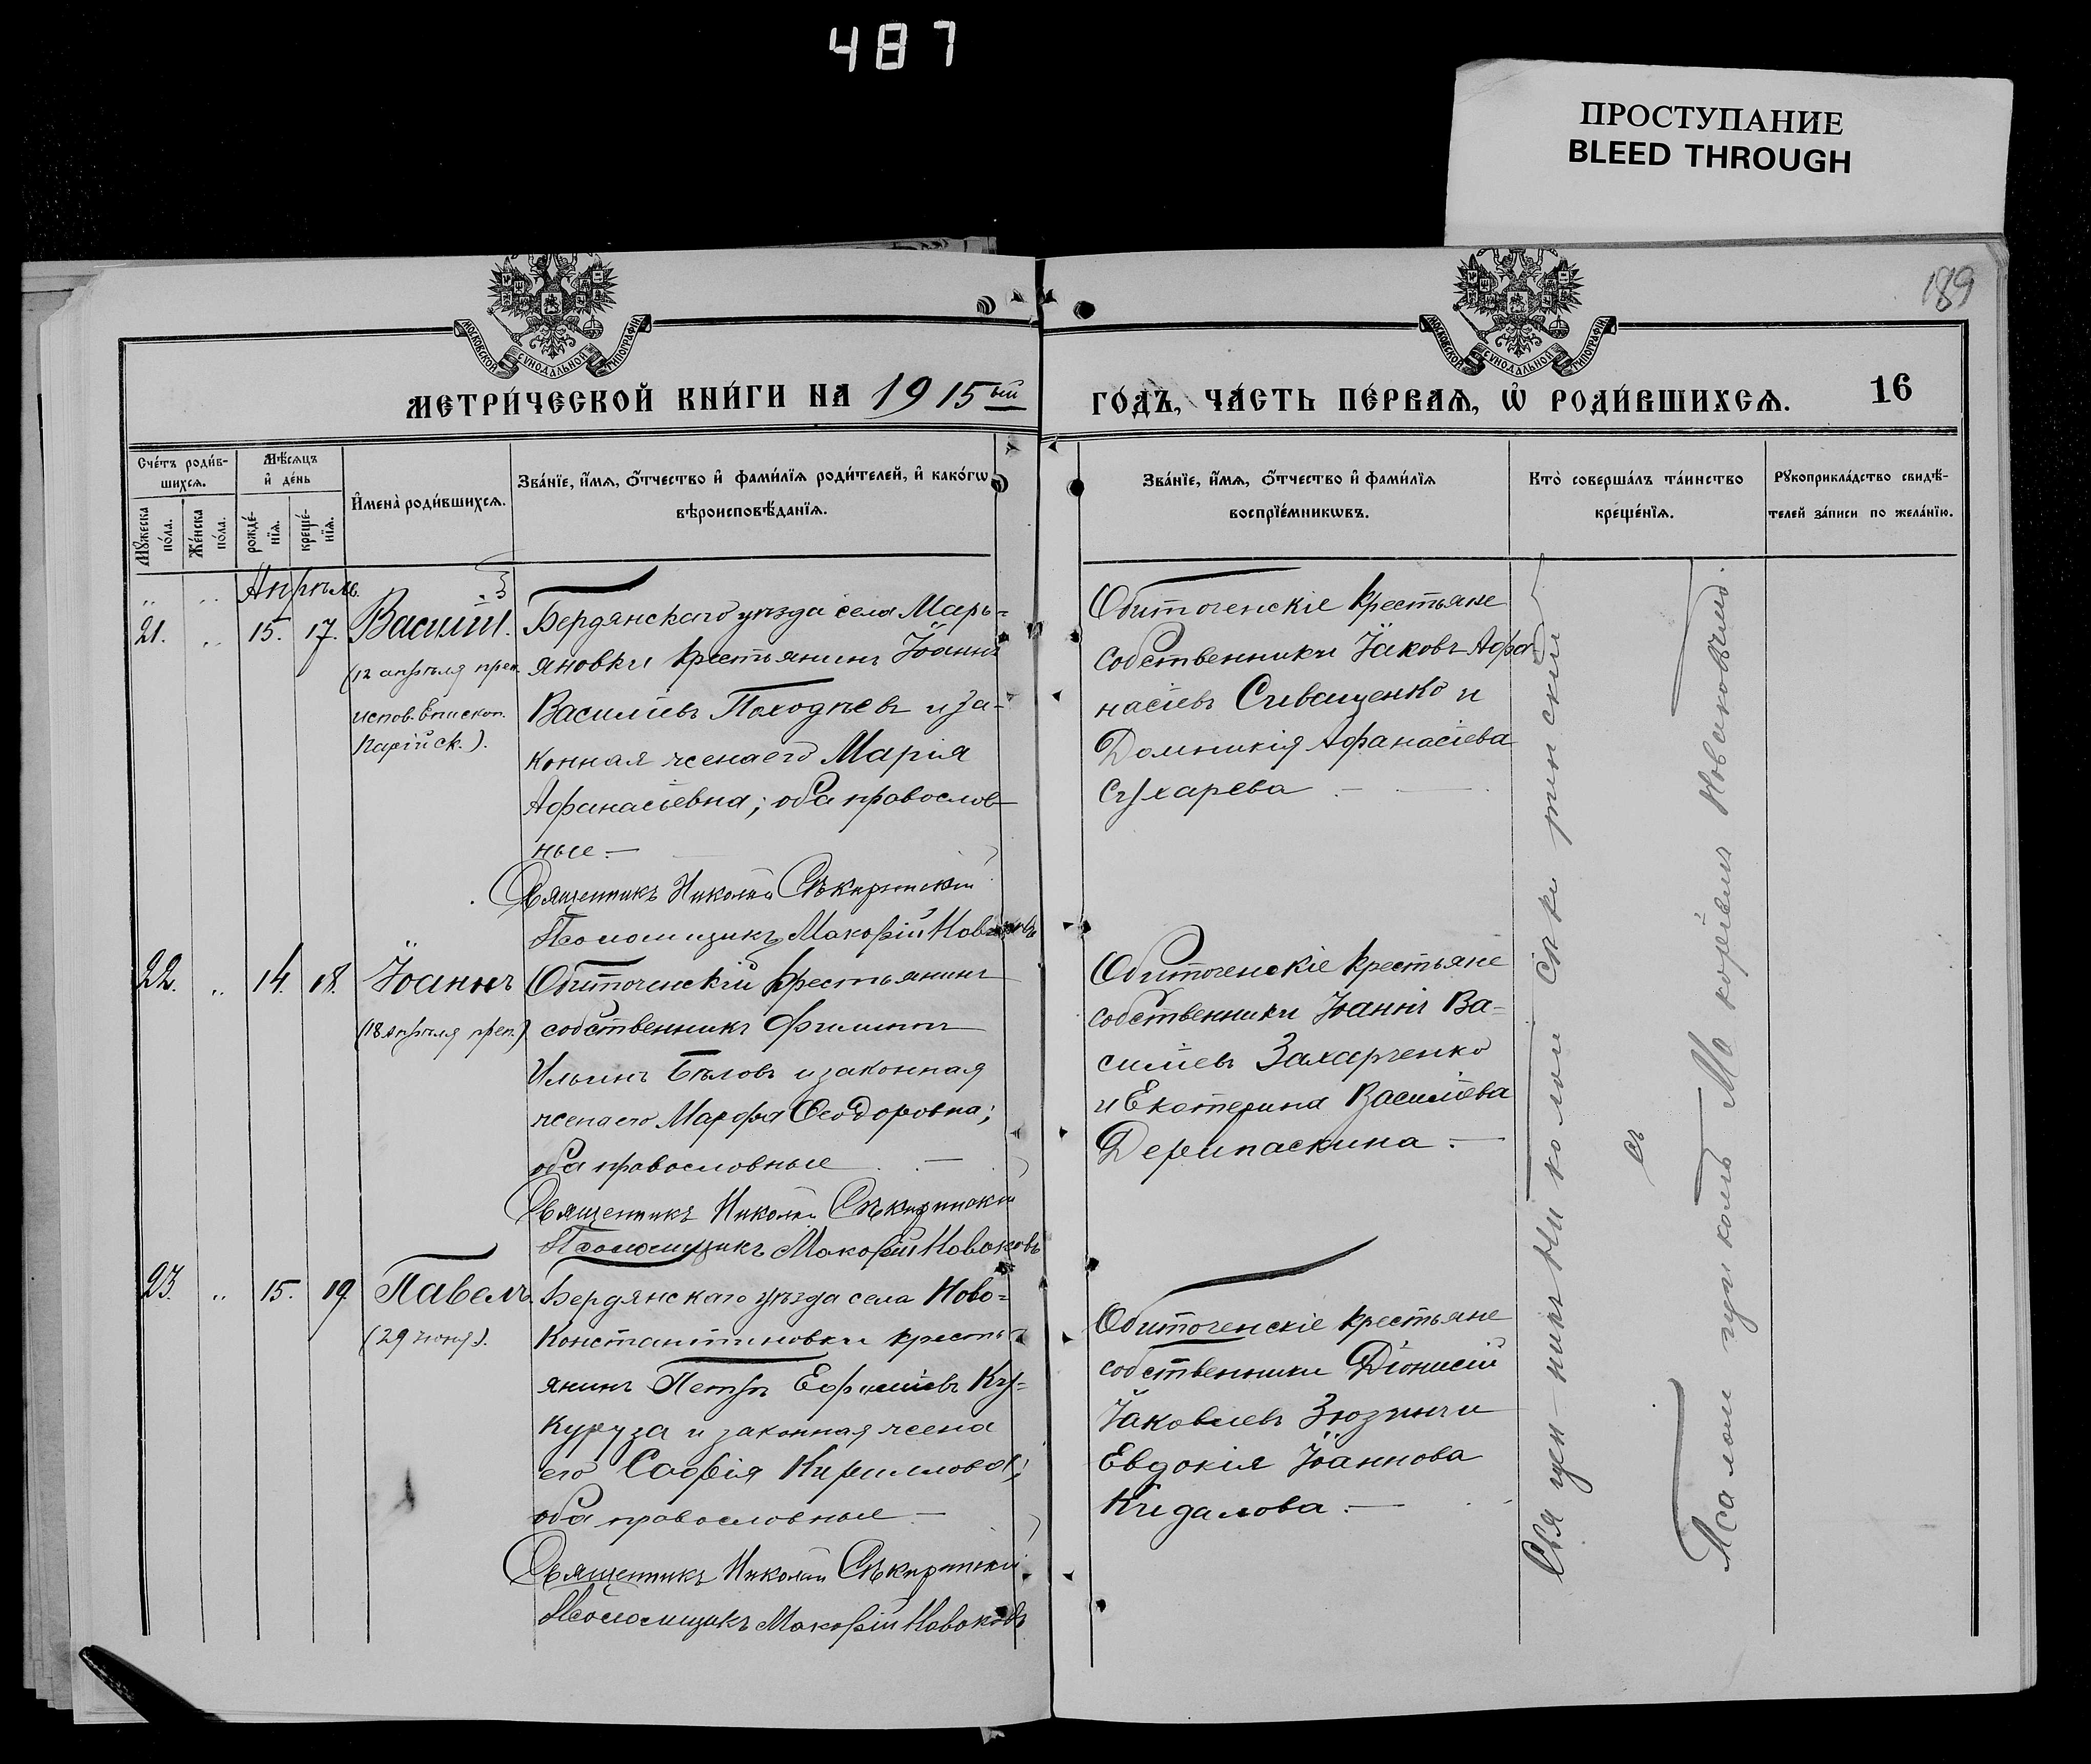 487
ПРОСТУПАНИЕ
BLEED THROUGH
189
МОСКОВСКОЙ СУНОДАЛЬНОЙ ТИПОГРАФІИ
МОСКОВСКОЙ СУНОДАЛЬНОЙ ТИПОГРАФІИ
МЕТРИ́ЧЕСКОЙ КНИ́ГИ НА 1915ый
ГО́ДЪ, ЧА́СТЬ ПЕ́РВАѦ, Ѡ РОДИ́ВШИХСѦ. 16
Сче́тъ роди́в-
шихсѧ.
Мꙋжеска по́ла.
Же́нска по́ла.
Мѣ́сѧцъ
и҆ де́нь
рожде́-
нїѧ.
креще́-
нїѧ.
И҆мена̀ роди́вшихсѧ.
Зва́нїе, и҆́мѧ, ѻ҆́тчество и҆ фами́лїѧ роди́телей, и҆ како́гѡ
вѣроисповѣ́данїѧ.
Зва́нїе, и҆́мѧ, ѻ҆́тчество и҆ фами́лїѧ
воспрїе́мникѡвъ.
Кто̀ соверша́лъ та́инство
креще́нїѧ.
Рꙋкоприкла́дство свидѣ́-
телей за́писи по жела́нїю.
Апрѣль
21. „ 15. 17. Василій.
(12 апрѣля преп.
испов. Епископ.
Парійск.).
Бердянскаго уѣзда села Марь-
яновки крестьянинъ Іоаннъ
Василіевъ Походѣевъ и за-
конная жена его Марія
Афанасіевна; оба православ-
ные. —
Священникъ Николай Сѣкиринскій
Псаломщикъ Макарій Новаковъ
Обиточенскіе крестьяне
собственники Іаковъ Афа-
насіевъ Сиващенко и
Домникія Афанасіева
Сухарева —
22. „ 14. 18. Іоаннъ
(18 апрѣля преп.)
Обиточенскій крестьянинъ
собственникъ Филиппъ
Ильинъ Бѣловъ и законная
жена его Марфа Ѳеодоровна;
оба православные —
Священникъ Николай Сѣкиринскій
Псаломщикъ Макарій Новаковъ
Обиточенскіе крестьяне
собственники Іоаннъ Ва-
силіевъ Захарченко
и Екатерина Василіева
Дерипаскина. —
23. „ 15. 19. Павелъ.
(29 іюня).
Бердянскаго уѣзда села Ново-
Константиновки кресть-
янинъ Петръ Ефимовъ Ку-
куруза и законная жена
его Софія Кириллова;
оба православные —
Священникъ Николай Сѣкиринскій
Псаломщикъ Макарій Новаковъ
Обиточенскіе крестьяне
собственники Діонисій
Іаковлевъ Зюзинъ и
Евдокія Іоаннова
Кидалова. —
Священникъ Николай Сѣкиринскій
съ
Псаломщикомъ Макаріемъ Новаковымъ.